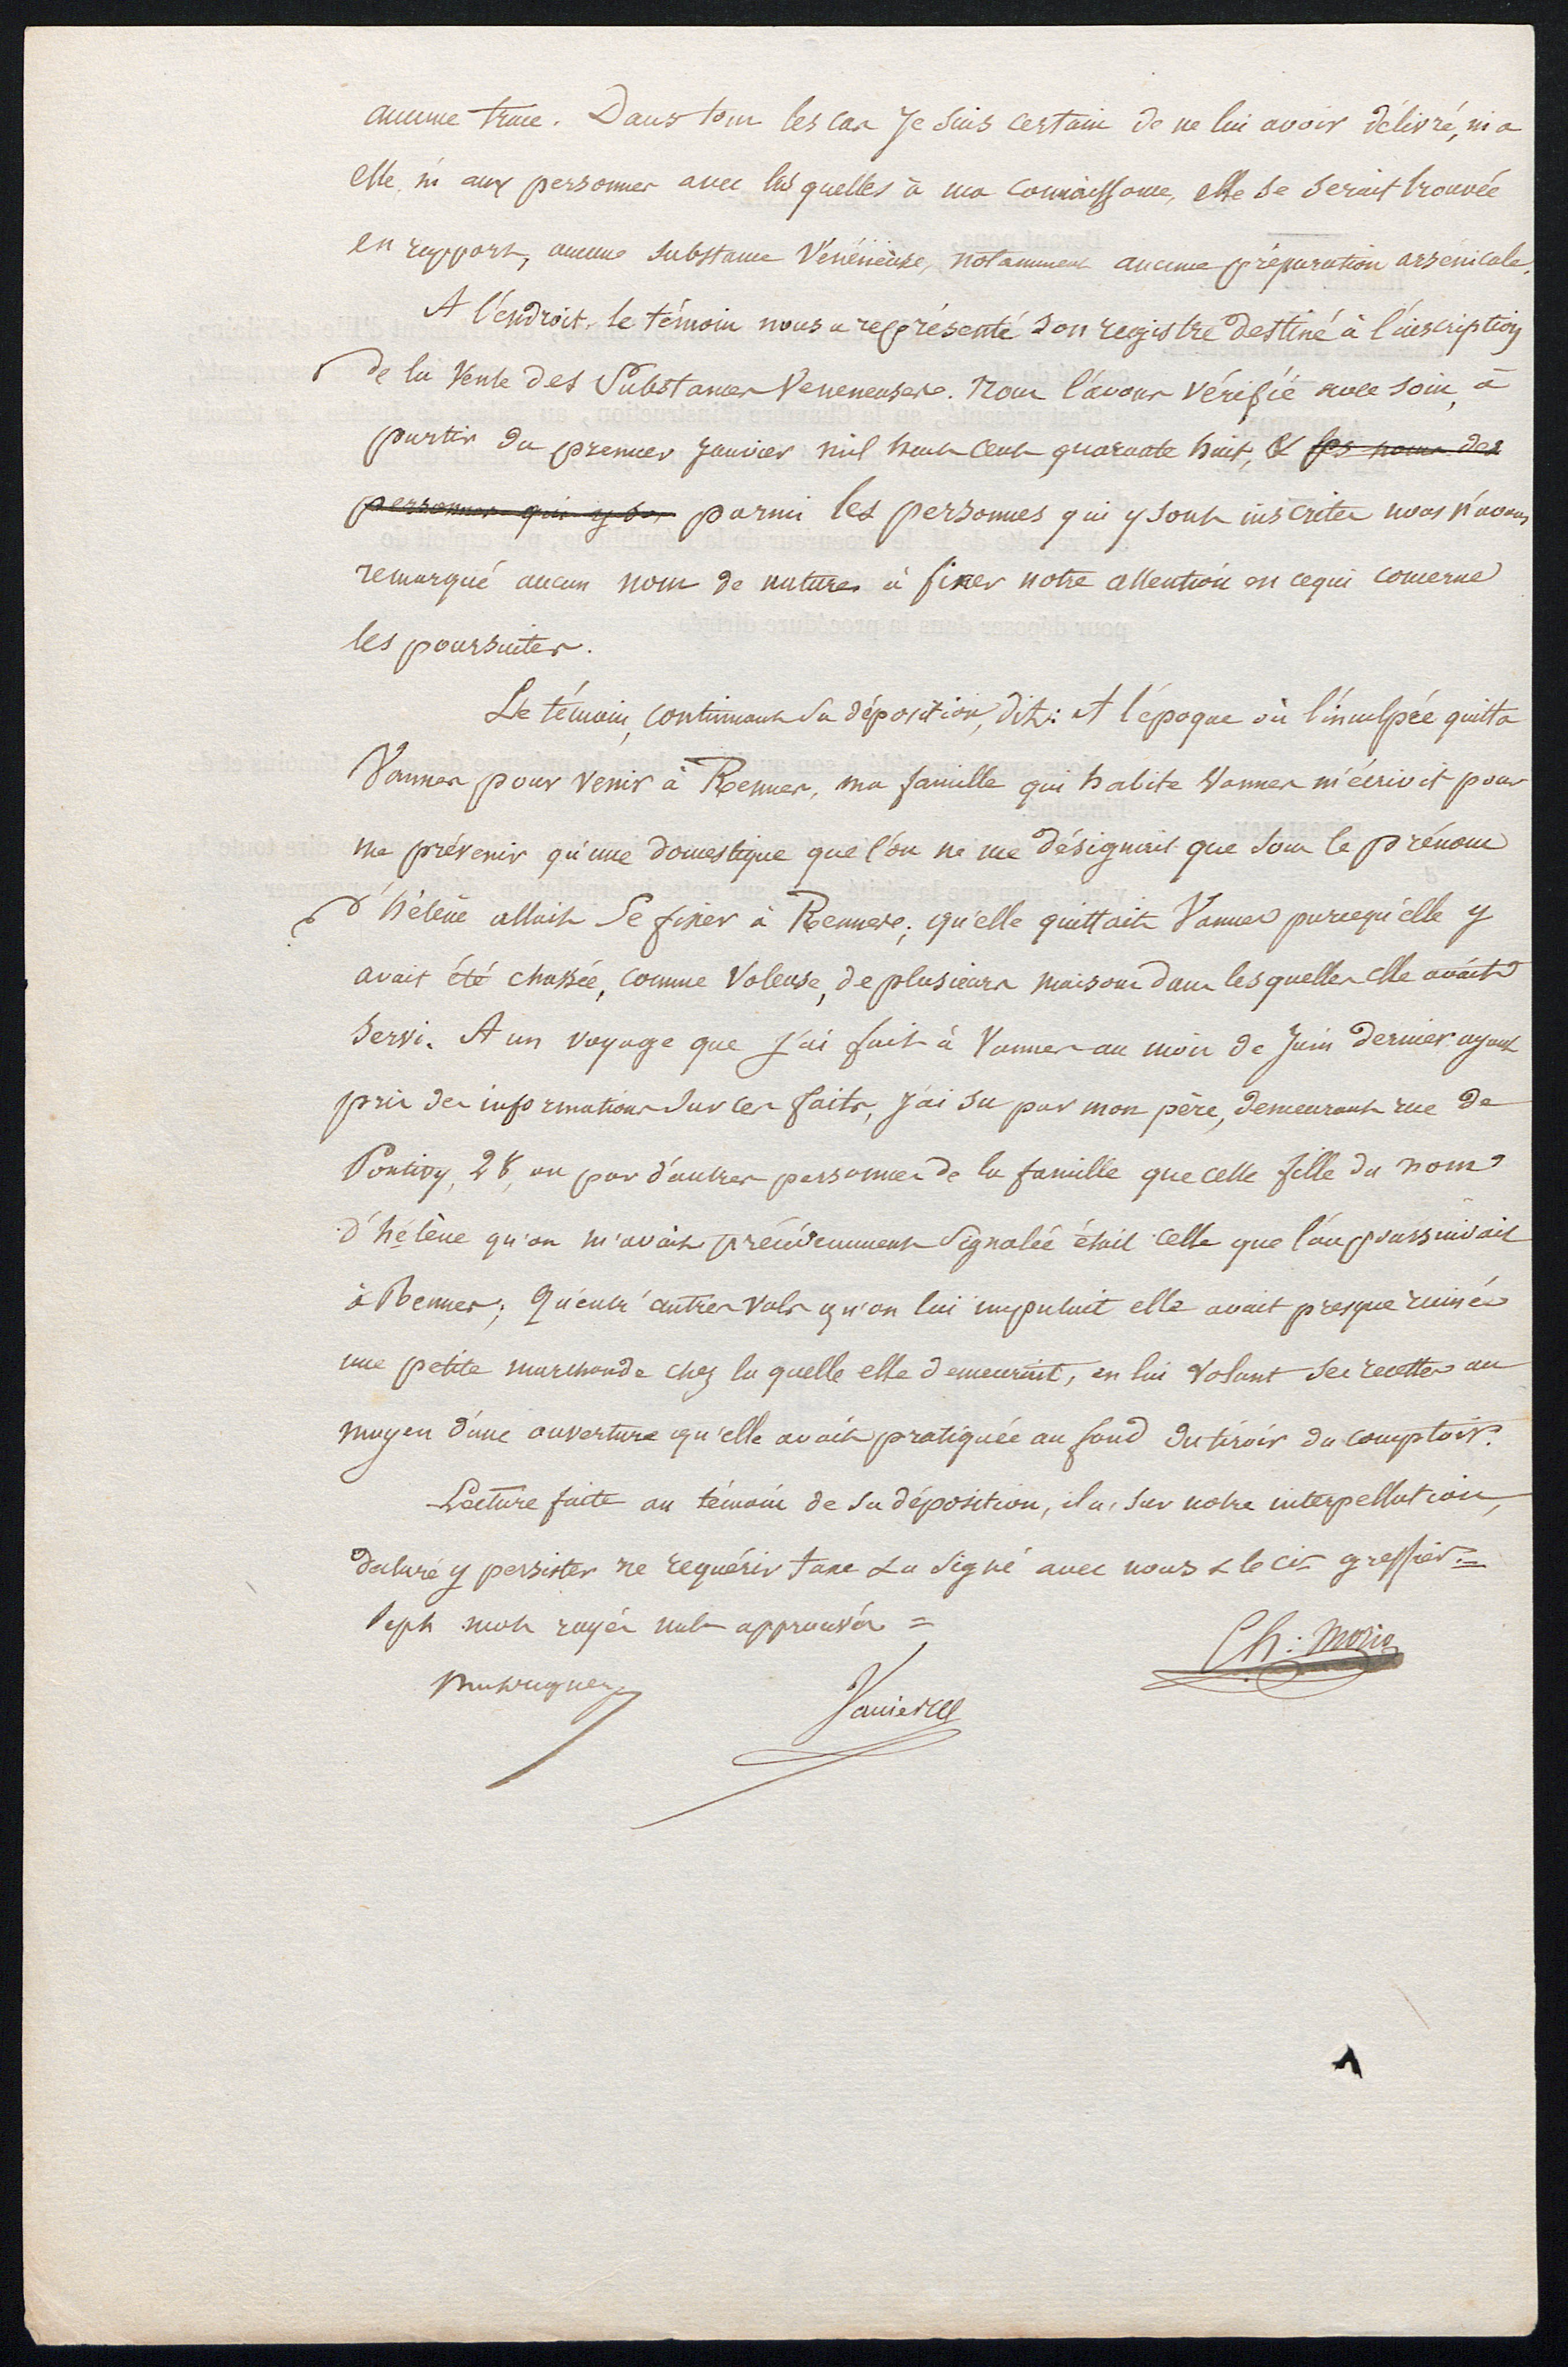 aucune trace. Dans tous les cas Je suis certain de ne lui avoir délivré, ni a
elle ni aux personnes avec lesquelles à ma connaissance, elle se serait trouvée
en rapport, aucune substance vénéneuse, notamment aucune préparation arsénicale.
A l'endroit, le témoin nous a représenté son registre destiné à l'inscription
de la vente des Substances Veneneuses. Nous l'avons vérifié avec soin, à
partir du premier Janvier mil huit cent quarante huit, & les noms des
personnes qui y so parmi les personnes qui y sont inscrites nous n'avons
remarqué aucun nom de nature à fixer notre attention en ce qui concerne
les poursuites.
Le témoin, continuant sa déposition, dit: A l'époque où l'inculpée quitta
Vannes pour venir à Rennes, ma famille qui habite Vannes m'écrivit pour
me prévenir qu'une domestique que l'on ne me désignait que sous le prénom
d'hélène allait se fixer à Rennes; qu'elle quittait Vannes parcequ'elle y
avait été chassée, comme voleuse, de plusieurs maisons dans lesquelles elle avait
servi. A un voyage que j'ai fait à Vannes au mois de Juin dernier ayant
pris des informations sur ces faits, j'ai su par mon père, demeurant rue de
Pontivy, 28, ou par d'autres personnes de la famille que cette fille du nom
d'hélène qu'on m'avait précédemment signalée était celle que l'on poursuivait
à Rennes; qu'entr'autres vols qu'on lui imputait elle avait presque ruiné
une petite marchande chez laquelle elle demeurait, en lui volant ses recettes au
moyen d'une ouverture qu'elle avait pratiquée au fond du tiroir du comptoir.
Lecture faite au témoin de sa déposition, il a, sur notre interpellation,
déclaré y persister ne requérir taxe & a signé avec nous & le cit greffier. =
Sept mots rayés nuls approuvés =
Ch: Morio
Vannier